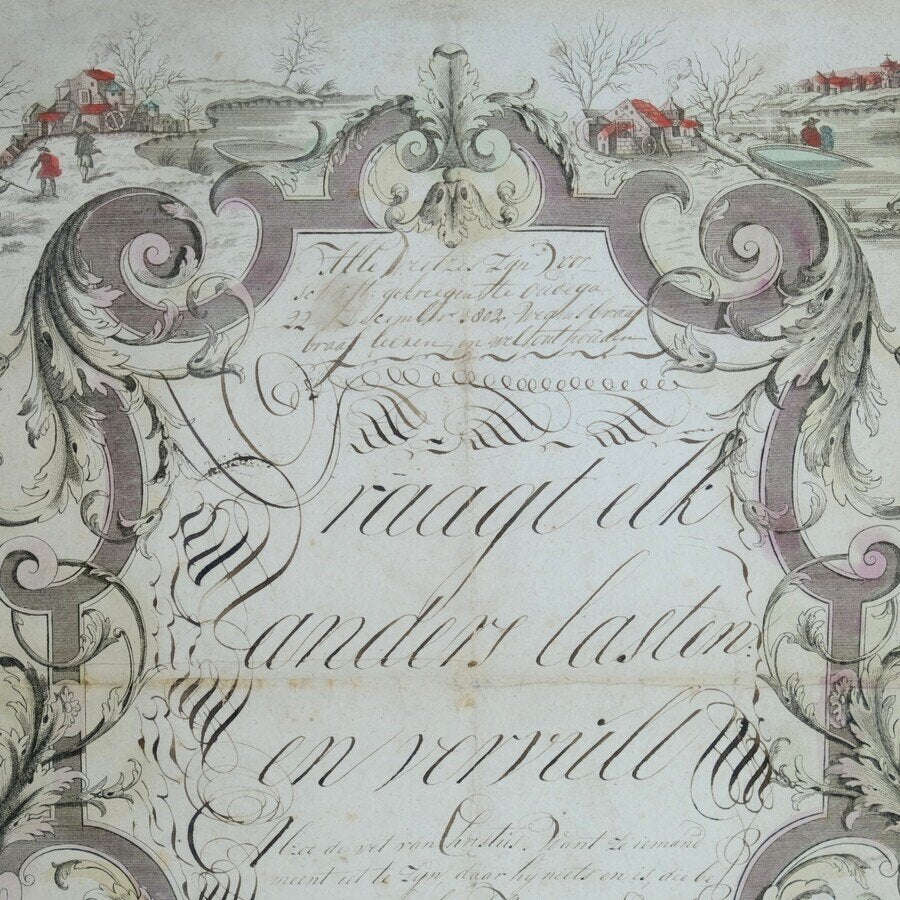 Alle Prijzes Zijn Voor
Schrift: gekreegen te
22 December 1802, Wegens braaf
braaf leeren, en wel onthouden
Draagt elk
anders lasten:
en vervult
Alzoo de wet van Christus. Want zo iemand
meent iet te Zijn daar hij niets en is, die be